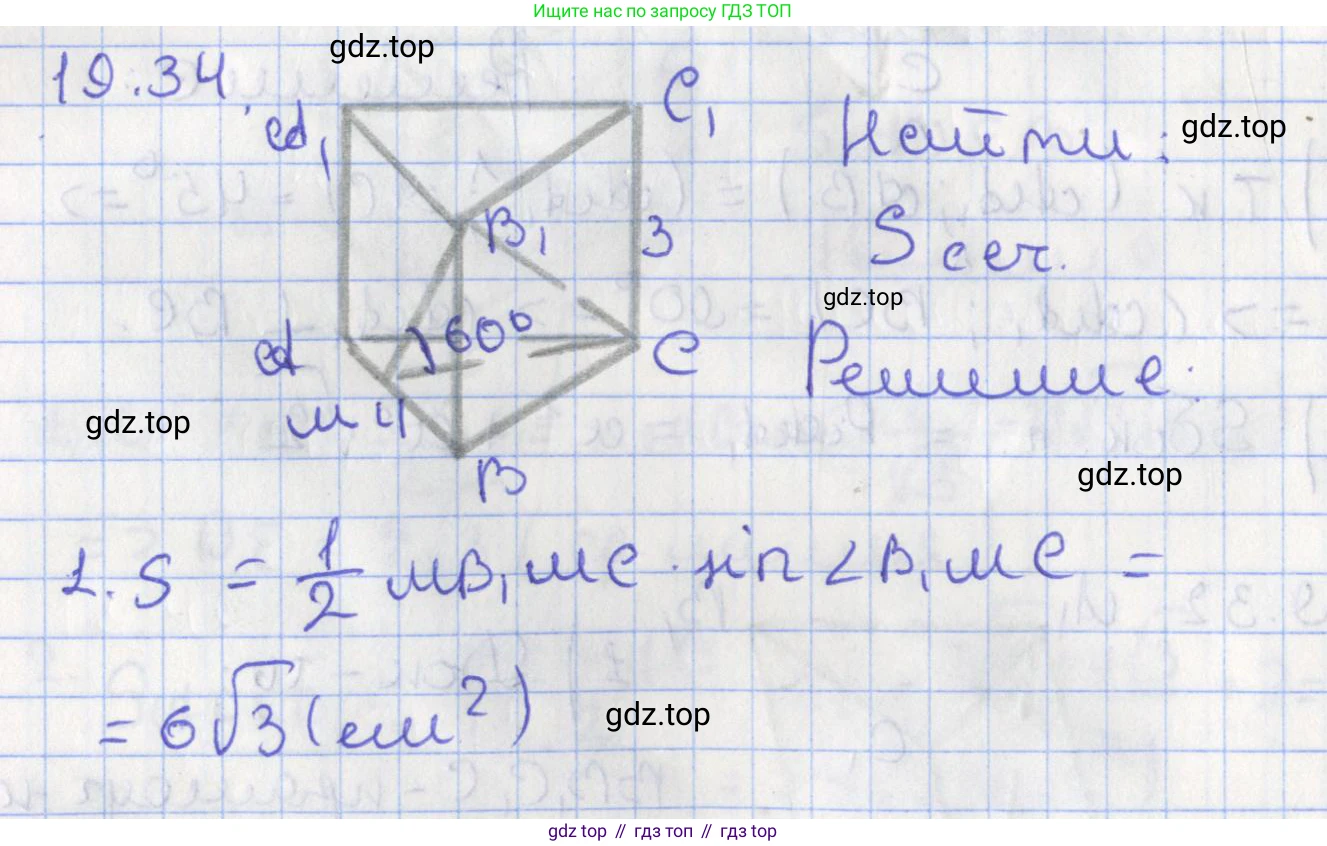 Ищите нас по запросу ГДЗ ТОП
19.34.
gdz.top
A₁
C₁
Найти:
gdz.top
B₁
3
S сеч.
gdz.top
A
60°
C
Решение:
gdz.top
M 4
B
gdz.top
1. S = 1/2 MB₁ MC · sin ∠B₁MC =
= 6√3 (см²)
gdz.top
gdz top // гдз топ // gdz top